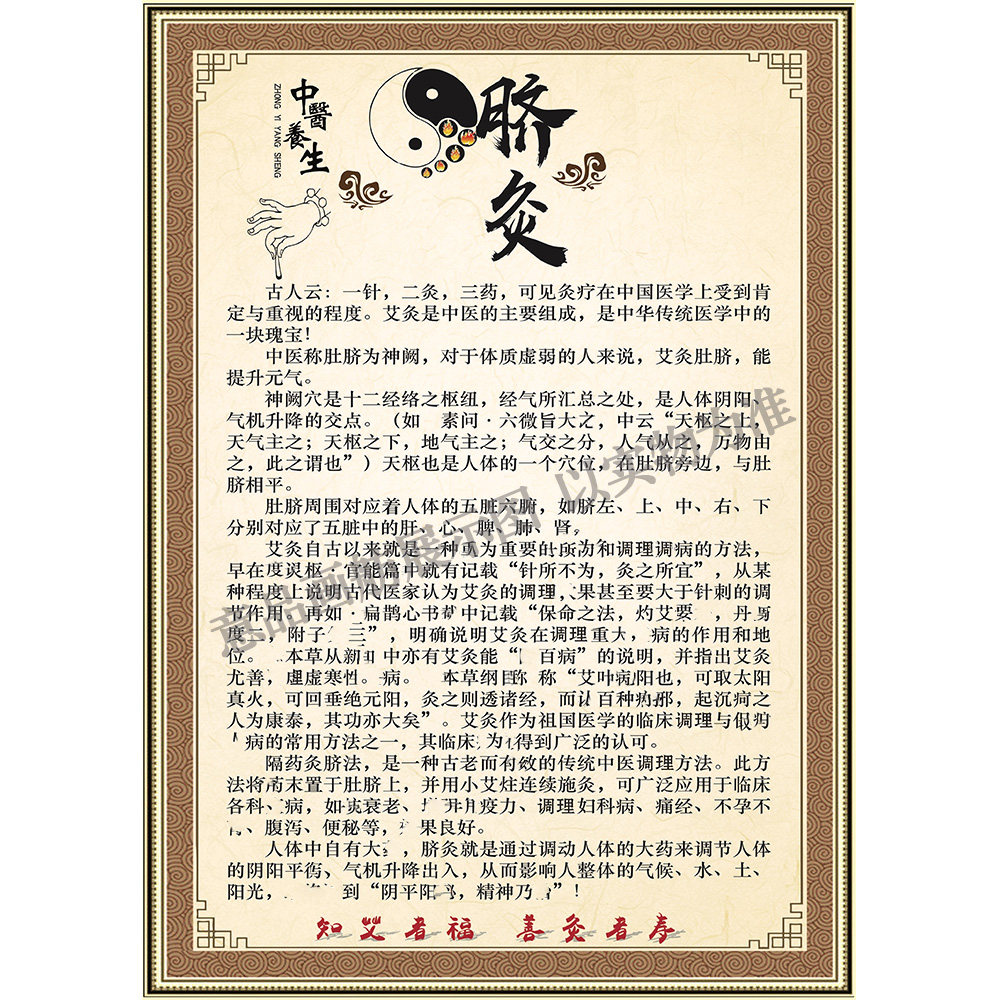 中醫養生
ZHONG YI YANG SHENG
脐灸
古人云：一针，二灸，三药，可见灸疗在中国医学上受到肯
定与重视的程度。艾灸是中医的主要组成，是中华传统医学中的
一块瑰宝！
中医称肚脐为神阙，对于体质虚弱的人来说，艾灸肚脐，能
提升元气。
神阙穴是十二经络之枢纽，经气所汇总之处，是人体阴阳、
气机升降的交点。（如 素问·六微旨大之，中云“天枢之上，
天气主之；天枢之下，地气主之；气交之分，人气从之，万物由
之，此之谓也”）天枢也是人体的一个穴位，在肚脐旁边，与肚
脐相平。
肚脐周围对应着人体的五脏六腑，如脐左、上、中、右、下
分别对应了五脏中的肝、心、脾、肺、肾。
艾灸自古以来就是一种 为重要的 和调理调病的方法，
早在 枢 官能篇中就有记载“针所不为，灸之所宜”，从某
种程度上说明古代医家认为艾灸的调理 果甚至要大于针刺的调
节作用 再如·扁鹊心书 中记载“保命之法，灼艾 ，丹
度二，附子 三”，明确说明艾灸在调理重大 病的作用和地
位。 本草从新 中亦有艾灸能“ 百病”的说明，并指出艾灸
尤善， 虚寒性 病。 本草纲目 称“艾叶 阳也，可取太阳
真火，可回垂绝元阳，灸之则透诸经，而 百种 邪，起沉疴之
人为康泰，其功亦大矣”。艾灸作为祖国医学的临床调理与
病的常用方法之一，其临床 为 得到广泛的认可。
隔药灸脐法，是一种古老而有效的传统中医调理方法。此方
法将 末置于肚脐上，并用小艾炷连续施灸，可广泛应用于临床
各科 病，如 衰老、 疫力、调理妇科病、痛经、不孕不
、腹泻、便秘等， 果良好。
人体中自有大 ，脐灸就是通过调动人体的大药来调节人体
的阴阳平衡、气机升降出入，从而影响人整体的气候、水、土、
阳光， 到“阴平阳 ，精神乃 ”！
知艾者福 善灸者寿
意品画柘展示图 以实物为准